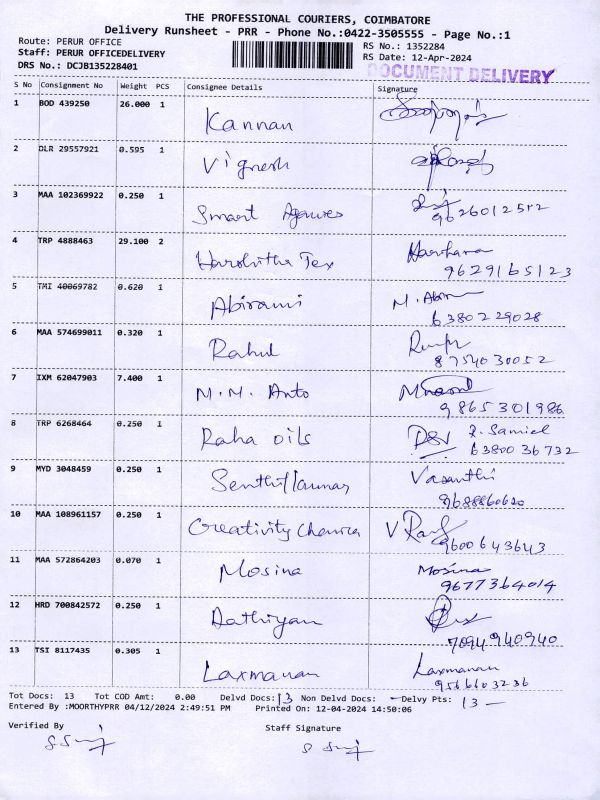 THE PROFESSIONAL COURIERS, COIMBATORE
Delivery Runsheet - PRR - Phone No.:0422-3505555 - Page No.:1
Route: PERUR OFFICE
RS No.: 1352284
Staff: PERUR OFFICEDELIVERY
RS Date: 12-Apr-2024
DRS No.: DCJB135228401
DOCUMENT DELIVERY
S No Consignment No Weight PCS Consignee Details Signature
1 BOD 439250 26.000 1 Kannan
2 DLR 29557921 0.595 1 Vignesh
3 MAA 102369922 0.250 1 Smart
9626012512
4 TRP 4888463 29.100 2 Harshitha Tex
9629165123
5 TMI 40069782 0.620 1 Abirami M. Abi
6380229028
6 MAA 574699011 0.320 1 Rahul
8754030052
7 IXM 62047903 7.400 1 M.M. Anto
9865301986
8 TRP 6268464 0.250 1 Raha oils
6380036732
9 MYD 3048459 0.250 1 Senthilkumar Vasanthi
9688860620
10 MAA 108961157 0.250 1 Creativity
9600643643
11 MAA 572864203 0.070 1 Mosina Mosina
9677364014
12 HRD 700842572 0.250 1 Aathiyan
7094940940
13 TSI 8117435 0.305 1 Laxmanan Laxmanan
9566603236
Tot Docs: 13 Tot COD Amt: 0.00 Delvd Docs: 13 Non Delvd Docs: - Delvy Pts: 13 -
Entered By :MOORTHYPRR 04/12/2024 2:49:51 PM Printed On: 12-04-2024 14:50:06
Verified By Staff Signature